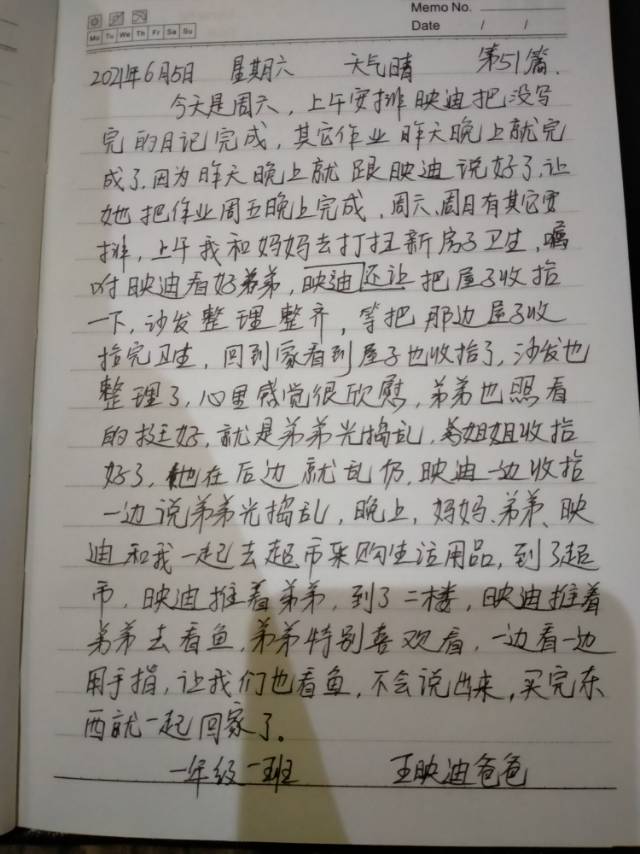 Memo No.
Mo Tu We Th Fr Sa Su
Date / /
2021年6月5日 星期六 天气晴 第51篇.
今天是周六，上午安排映迪把没写
完的日记完成，其它作业昨天晚上就完
成了，因为昨天晚上就跟映迪说好了，让
她把作业周五晚上完成，周六、周日有其它安
排，上午我和妈妈去打扫新房子卫生，嘱
咐映迪看好弟弟，映迪还让把屋子收拾
一下，沙发整理整齐，等把那边屋子收
拾完卫生，回到家看到屋子也收拾了，沙发也
整理了，心里感觉很欣慰，弟弟也照看
的挺好，就是弟弟光捣乱，姐姐收拾
好了，他在后边就乱仍，映迪一边收拾
一边说弟弟光捣乱，晚上，妈妈、弟弟、映
迪和我一起去超市采购生活用品，到了超
市，映迪推着弟弟，到了二楼，映迪推着
弟弟去看鱼，弟弟特别喜欢看，一边看一边
用手指，让我们也看鱼，不会说出来，买完东
西就一起回家了。
一年级一班 王映迪爸爸